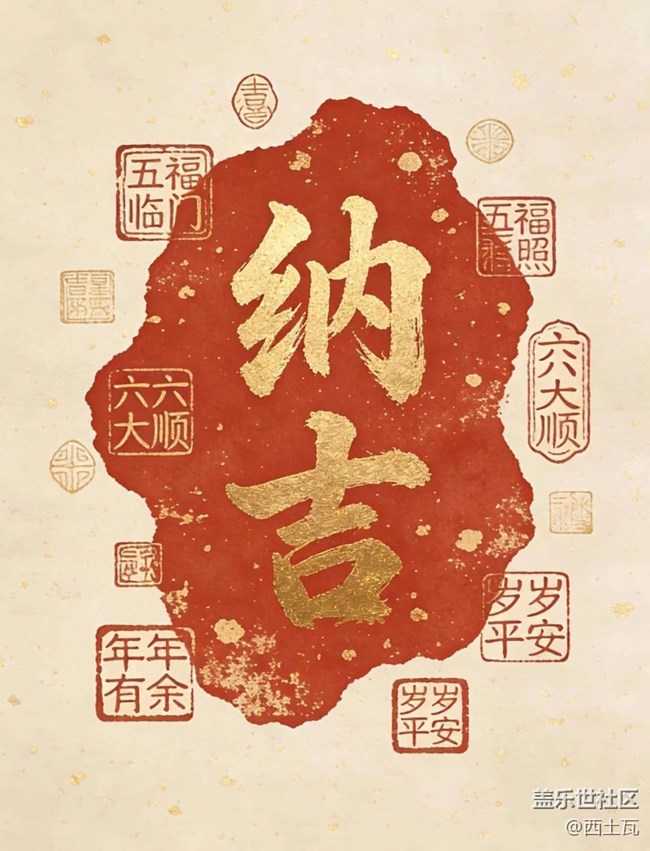 喜
五福
临门
五福
照
纳吉
六六
大顺
六大顺
岁岁
平安
年年
有余
岁岁
平安
盖乐世社区
@西土瓦